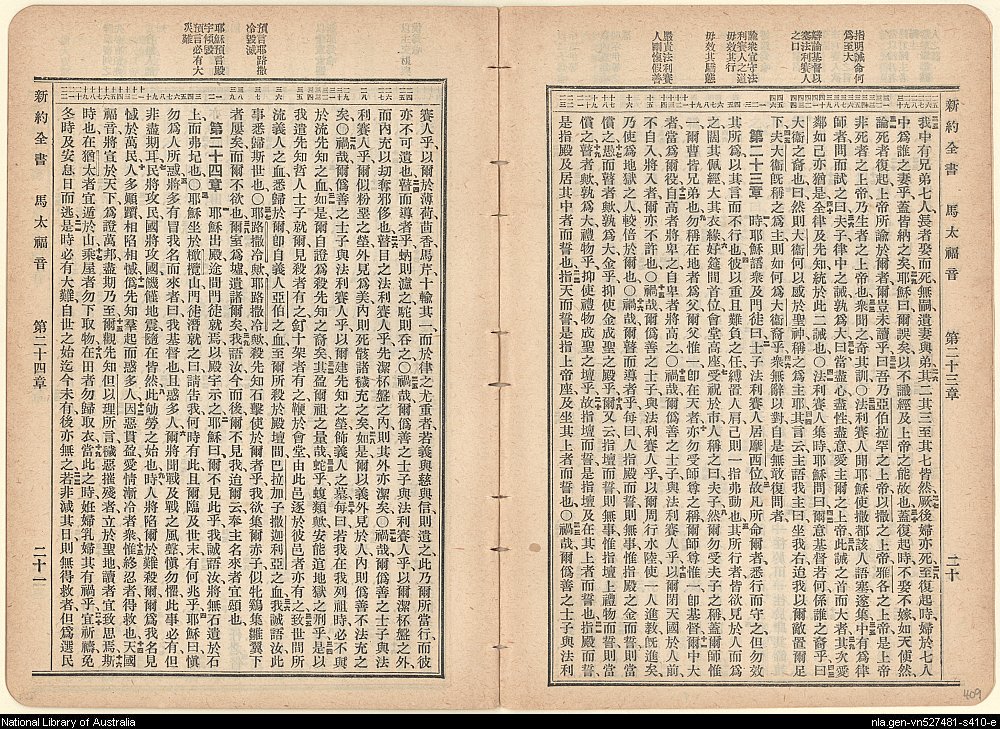 指明誡命何
爲至大
辯論基督以
塞法利賽人
之口
新約全書 馬太福音 第二十三章 二十
我中有兄弟七人長者娶而死無嗣遺妻與弟其二其三至其七皆然厥後婦亦死至復起時婦於七人
中爲誰之妻乎蓋皆納之矣耶穌曰爾誤矣以不識經及上帝之能故也蓋復起時不娶不嫁如天使然
論死者復起上帝所諭於爾者爾豈未讀乎曰吾乃亞伯拉罕之上帝以撒之上帝雅各之上帝是上帝
非死者之上帝乃生者之上帝也衆聞之奇其訓〇法利賽人聞耶穌使撒都該人語塞遂集中有爲律
師者問而試之曰夫子律中之誡孰爲大曰當盡心盡性盡意愛主爾之上帝此誡之首而大者其次愛
鄰如己亦猶是全律及先知統於此二誡也〇法利賽人集時耶穌問曰爾意基督者何係誰之裔乎曰
大衞之裔也曰然則大衞何以感於聖神稱之爲主耶其言云主語我主曰坐我右迨我以爾敵置爾足
下夫大衞旣稱之爲主則如何爲大衞裔乎衆無辭以對自是無敢復問者
第二十三章 時耶穌語衆及門徒曰士子法利賽人居摩西位故凡所命爾者悉行而守之但勿效
其所爲以其言而不行也彼以重且難負之任縛置人肩己則一指弗動也其所行者皆欲見於人而爲
之闊其佩經大其衣繸好筵間首位會堂高座受祝於市人稱之曰夫子然爾勿受夫子之稱蓋爾師惟
一爾曹皆兄弟也勿稱在地者爲父蓋爾父惟一卽在天者亦勿受師尊之稱蓋爾師尊惟一卽基督爾中大
者當爲爾役自高者將卑之自卑者將高之〇禍哉爾僞善之士子與法利賽人乎以爾閉天國於人前
不自入將入者爾亦不許也〇禍哉爾僞善之士子與法利賽人乎以爾周行水陸使一人進敎旣進矣
乃使爲地獄之人較倍於爾也〇禍哉爾瞽而導者乎每曰人指殿而誓則無事惟指殿之金而誓則當
償之愚而瞽者歟孰爲大金乎抑使金成聖之殿乎爾又云指壇而誓則無事惟指壇上禮物而誓則當
償之瞽者歟孰爲大禮物乎抑使禮物成聖之壇乎故指壇而誓是指壇及在其上者而誓也指殿而誓
是指殿及居其中者而誓也指天而誓是指上帝座及坐其上者而誓也〇禍哉爾僞善之士子與法利
預言耶路撒
冷毀滅
耶穌預言殿
宇傾毀
預言必有大
災難
賽人乎以爾於薄荷茴香馬芹十輸其一而於律之尤重者若義與慈與信則遺之此乃爾所當行而彼
亦不可遺也瞽而導者乎蚋則濾之駝則吞之〇禍哉爾僞善之士子與法利賽人乎以爾潔杯盤之外
而內充以刼奪邪侈也瞽目之法利賽人乎先潔杯盤之內則其外亦潔矣〇禍哉爾僞善之士子與法
利賽人乎以爾似粉堊之塋外見爲美內則死骸諸穢充之矣如是爾以義外見於人內則僞善不法充之
矣〇禍哉爾僞善之士子與法利賽人乎以爾建先知之塋飾義人之墓每曰若我在我列祖時必不與
於流先知之血如是爾自證爲殺先知之裔矣其盈爾祖之量哉蛇乎蝮類歟安能逭地獄之刑乎是以
我遣先知哲人士子就爾見殺者有之釘十架者有之鞭於會堂由此邑逐於彼邑者亦有之致世間所
流義人之血悉歸於爾卽自義人亞伯之血至爾所殺於殿壇間巴拉加子撒迦利亞之血我誠語汝此
事悉歸斯世也〇耶路撒冷歟耶路撒冷歟殺先知石擊使於爾者乎我欲集爾赤子似牝鷄集雛翼下
者屢矣而爾不欲也爾室爲墟遺諸爾矣我語汝今而後爾不見我迨爾云奉主名來者宜頌也
第二十四章 耶穌出殿途間門徒就焉以殿宇示之耶穌曰爾不見此乎我誠語汝將無石遺於石
上而弗圮也〇耶穌坐於橄欖山門徒潛就之曰請告我何時有此且爾臨及世末有何兆乎耶穌曰愼
勿爲人所惑將多有冒我名而來者曰我基督也且惑多人爾將聞戰及戰之風聲愼勿懼此事必有但
非盡期耳民將攻民國將攻國饑饉地震隨在皆然此劬勞之始也時人將陷爾於難殺爾爾爲我名見
憾於萬民人多顚躓相陷相憾僞先知羣起而惑多人因惡貫盈愛情漸冷者衆惟終忍者得救也天國
福音將宣於天下爲證萬邦盡期乃至爾觀先知但以理所言穢惡摧殘者立於聖地讀者宜致思焉斯
時也在猶太者宜遁於山乘屋者勿下取物在田者勿歸取衣當此之時妊婦乳婦其有禍乎宜祈禱免
冬時及安息日而逃是時必有大難自世之始迄今未有後亦無之若非減其日則無得救者但爲選民
新約全書 馬太福音 第二十四章 二十一
409
National Library of Australia
nla.gen-vn527481-s410-e